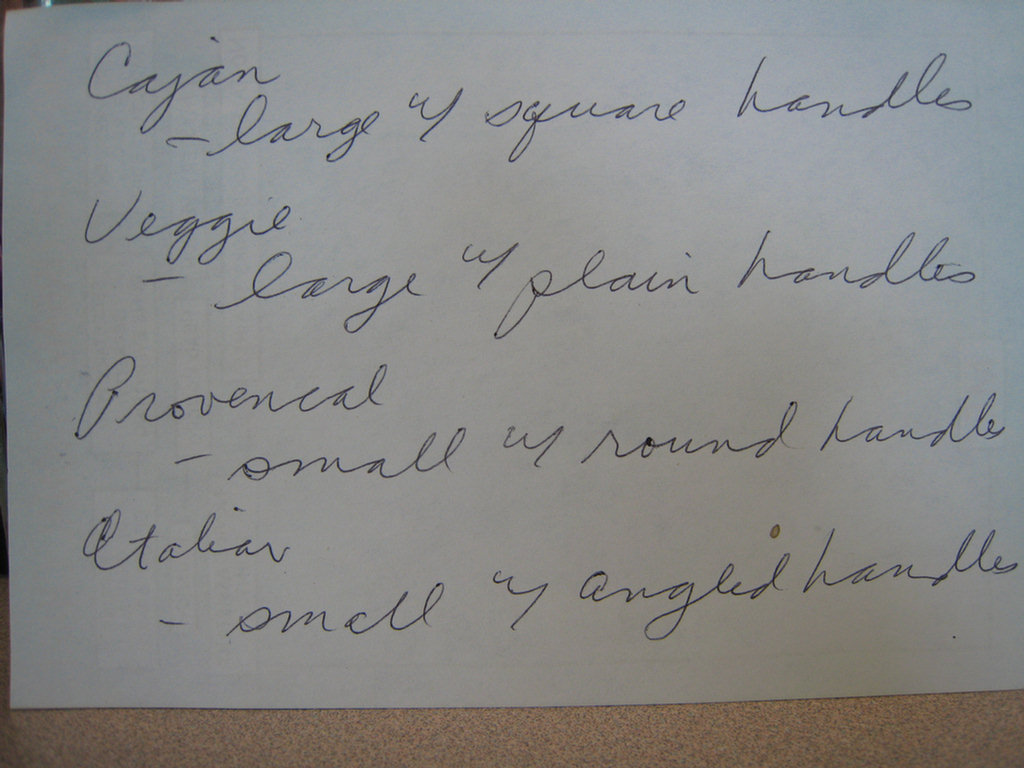 Cajan
- large w/ square handles
Veggie
- large w/ plain handles
Provencal
- small w/ round handles
Italian
- small w/ angled handles